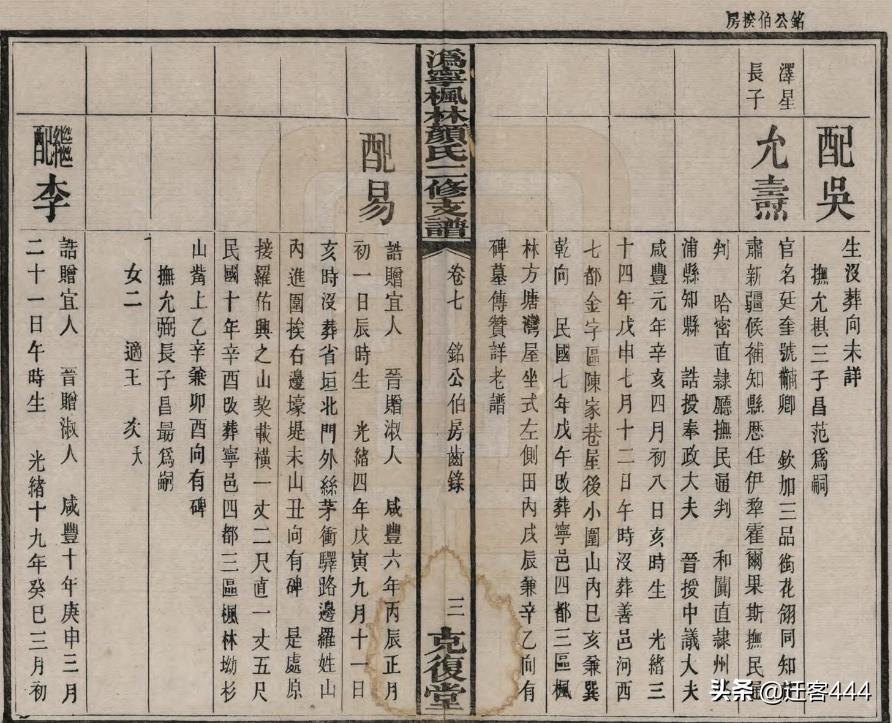 銘公伯揆房
配吳
生沒葬向未詳
撫允祺三子昌范爲嗣
澤星
長子
允燾
官名廷奎號黼卿 欽加三品銜花翎同知
肅新疆候補知縣歷任伊犂霍爾果斯撫民通
判 哈密直隸廳撫民通判 和闐直隸州
浦縣知縣 誥授奉政大夫 晉授中議大夫
咸豐元年辛亥四月初八日亥時生 光緒三
十四年戊申七月十二日午時沒葬善邑河西
七都金字區陳家巷屋後小圍山內巳亥兼巽
乾向 民國七年戊午改葬寧邑四都三區楓
林方塘灣屋坐式左側田內戌辰兼辛乙向有
碑墓傳贊詳老譜
溈寧楓林顏氏二修支譜
卷七 銘公伯房齒錄
三
克復堂
配易
誥贈宜人 晉贈淑人 咸豐六年丙辰正月
初一日辰時生 光緒四年戊寅九月十一日
亥時沒葬省垣北門外絲茅衝驛路邊羅姓山
內進圍挨右邊壕堤未山丑向有碑 是處原
接羅佑興之山契載橫一丈二尺直一丈五尺
民國十年辛酉改葬寧邑四都三區楓林坳杉
山嘴上乙辛兼卯酉向有碑
撫允弼長子昌最爲嗣
女二 適王
繼配李
誥贈宜人 晉贈淑人 咸豐十年庚申三月
二十一日午時生 光緒十九年癸巳三月初
头条 @迁客444